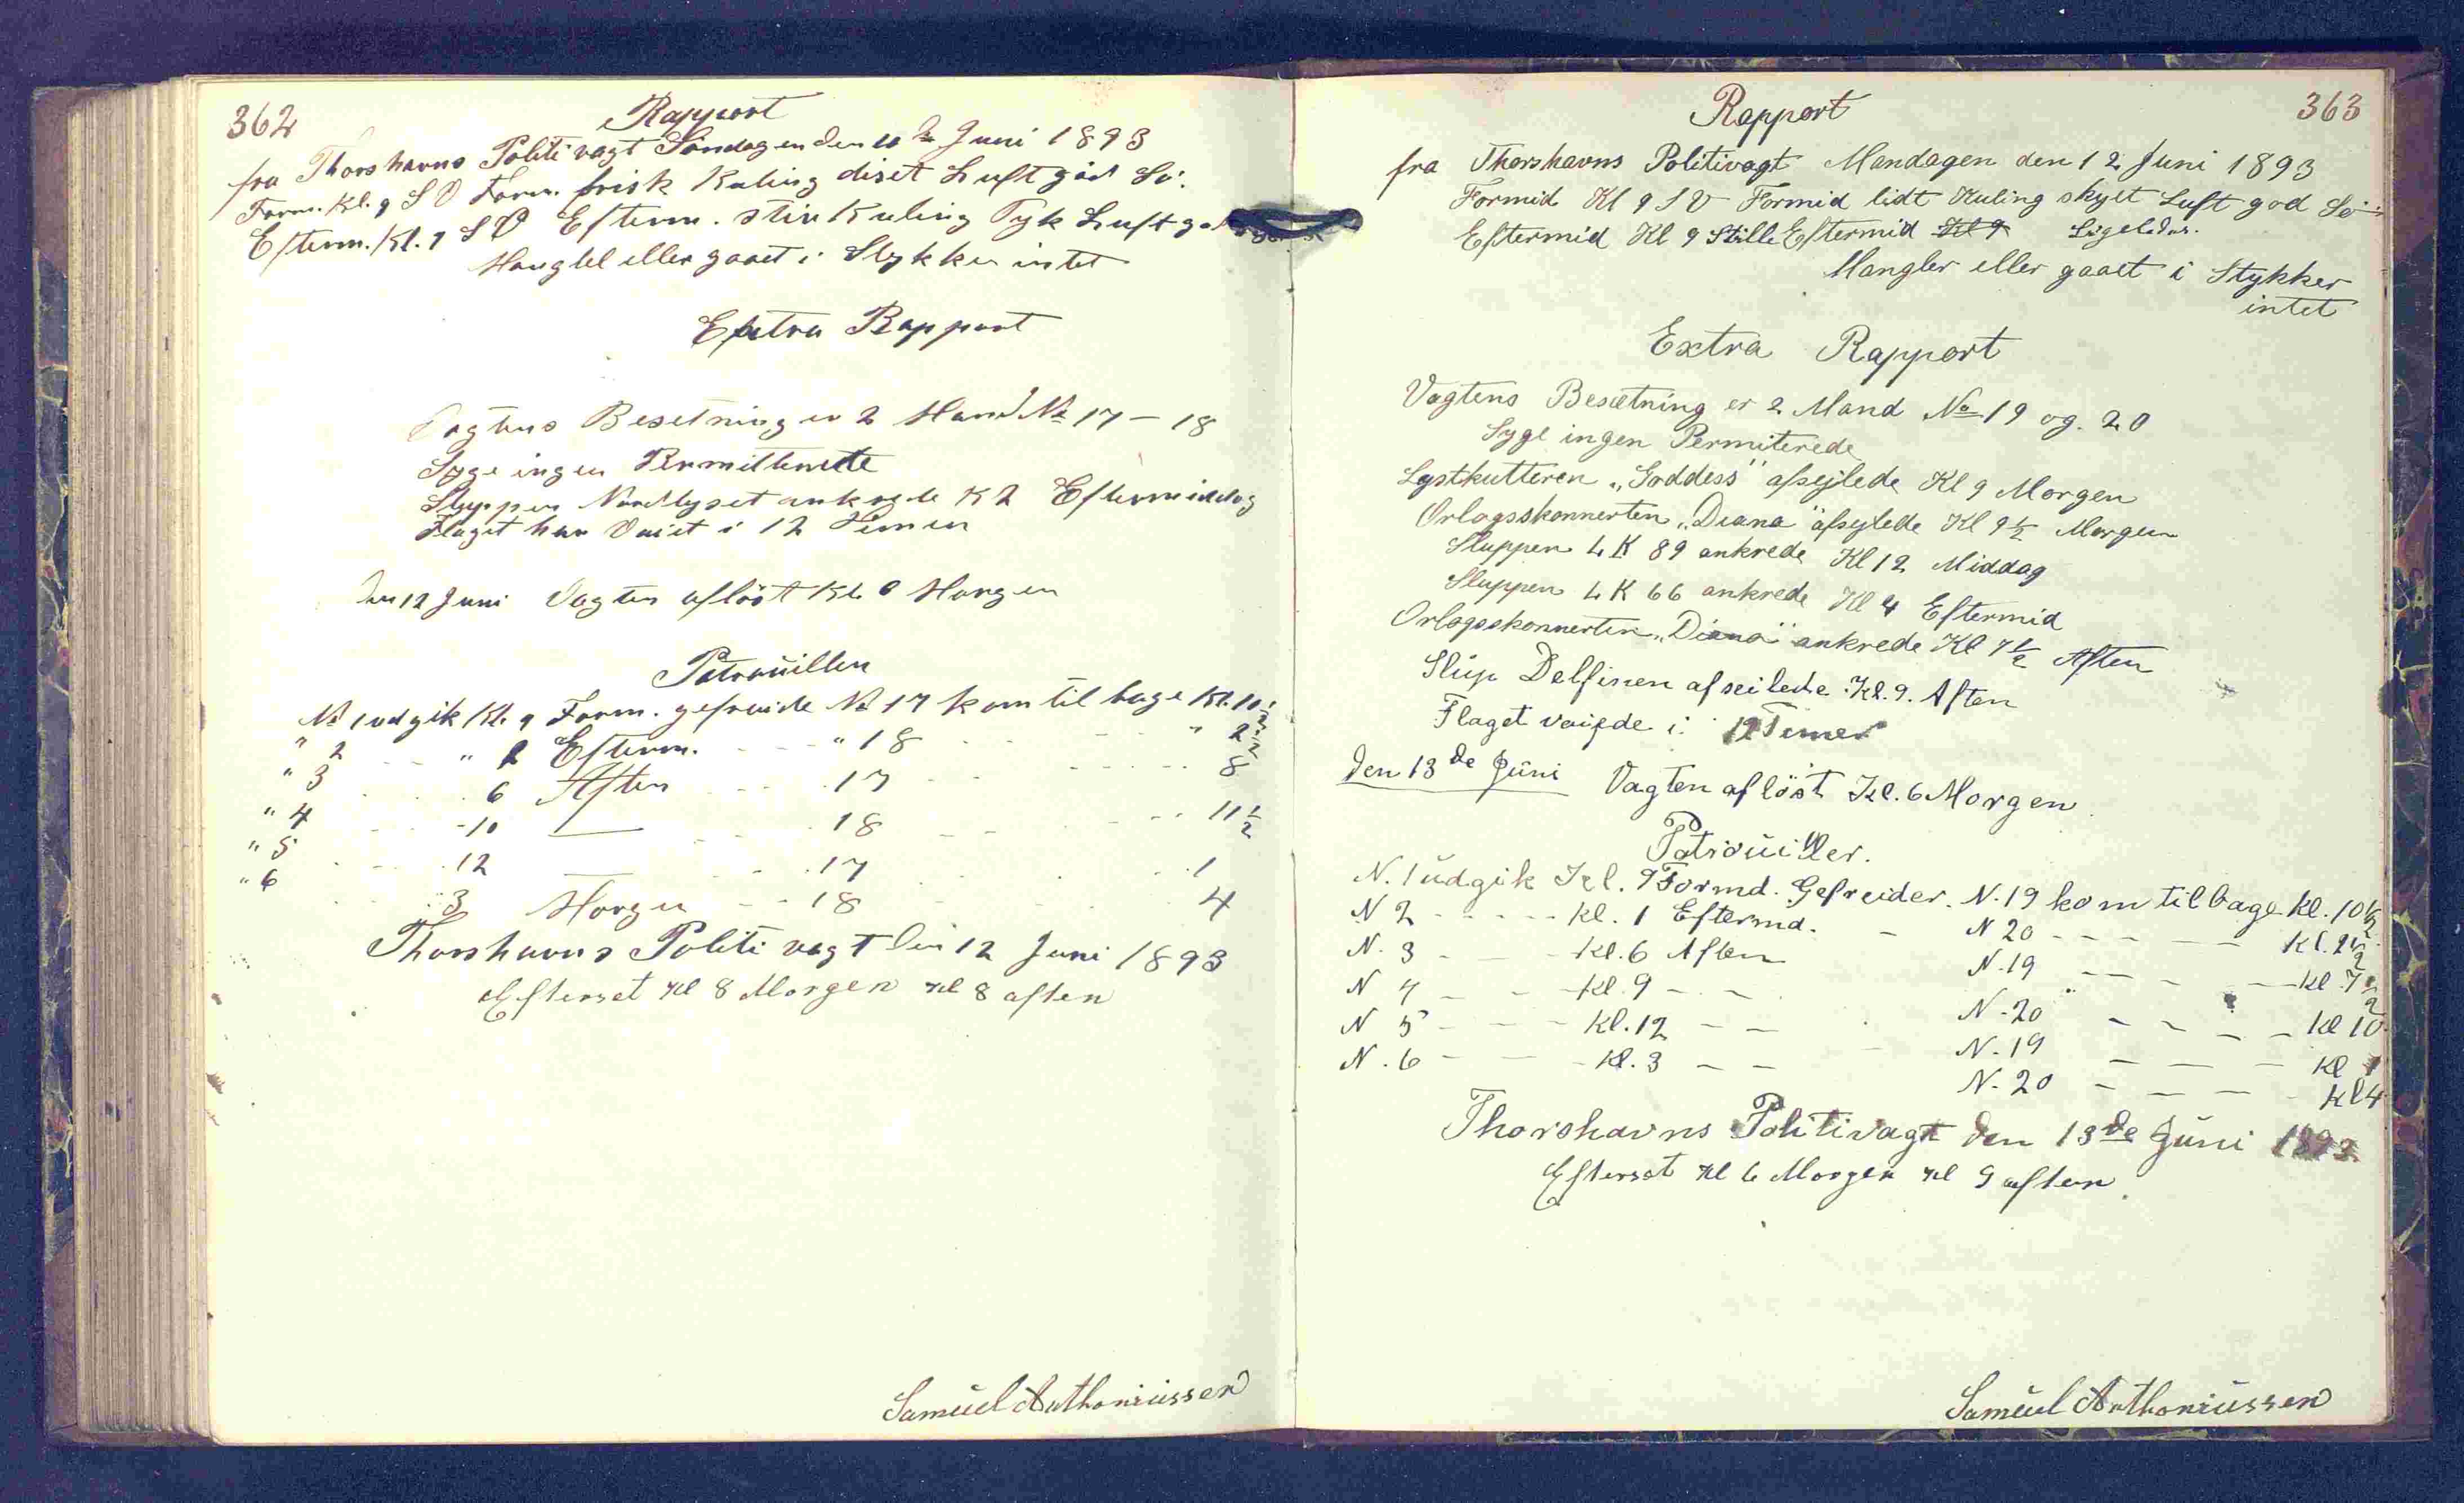 362
Rapport
fra Thorshavns Politivagt Söndagen den 11 de Juni 1893
Form. Kl. 9 SO Form. frisk Kuling diset Luft god Sö.
Efterm. Kl. 9 SO Efterm. stiv Kuling Tyk Luft god
Manglel eller gaaet i Stykker intet
Extra Rapport
Vagtens Besetning er 2 Mand No 17 - 18
Syge ingen Permitterete
Sluppen Nordlyset ankrede K 2 Eftermiddag
Flaget har Vaiet i 12 Timer
Den 12 Juni Vagten aflöst Kl 6 Morgen
Patrouillen
No 1 udgik Kl. 9 Form. gefreide No 17 kom tilbage Kl. 10 1/2
" 2 - - " 1 Efterm. - - - " 18 - - - " 2 1/2
" 3 - - 6 Aften - - - 17 - - - 8
" 4 - - 10 — - - 18 - - - 11 1/2
" 5 - - 12 — - - 17 - - - 1
" 6 - - 3 Morgen - - 18 - - - 4
Thorshavns Politivagt den 12 Juni 1893
Efterset Kl 8 Morgen Kl 8 aften
Samuel Anthoniussen
363
Rapport
fra Thorshavns Politivagt Mandagen den 12 Juni 1893
Formid Kl 9 SV Formid lidt Kuling skyet Luft god Sö
Eftermid Kl 9 Stille Eftermid Kl 9 Ligeledes.
Mangler eller gaaet i Stykker
intet
Extra Rapport
Vagtens Besætning er 2 Mand No 19 og. 20
Syge ingen Permiterede
Lystkutteren „Goddess" afsejlede Kl 9 Morgen
Orlogsskonnerten „Diana" afsejlede Kl 9 1/2 Morgen
Sluppen L K 89 ankrede Kl 12 Middag
Sluppen L K 66 ankrede Kl 4 Eftermid
Orlogsskonnerten „Diana" ankrede Kl 7 1/2 Aften
Slup Delfinen afseilede Kl. 9. Aften
Flaget vaiede i 12 Timer
Den 13 de Juni Vagten aflöst Kl. 6 Morgen
Patrouiller.
N. 1 udgik Kl. 9 Formd. Gefreider. N. 19 kom tilbage Kl. 10 1/2
N 2 - - - - - Kl. 1 Eftermd. - N 20 - - - - - Kl. 2 1/2
N. 3 - - - Kl. 6 Aften N. 19 - - - - Kl. 7 1/2
N 4 - - - Kl. 9 - - N. 20 - - - - Kl 10
N 5 - - - Kl. 12 - - N. 19 - - - Kl 1
N. 6 - - - Kl. 3 - - N. 20 - - - - Kl 4
Thorshavns Politivagt den 13 de Juni 1893.
Efterset Kl 6 Morgen Kl 9 aften
Samuel Anthoniussen